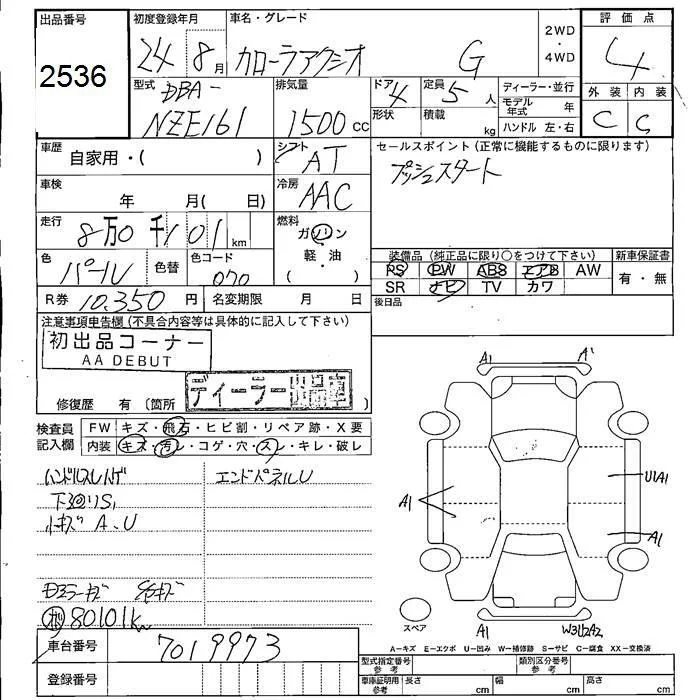 出品番号
2536
初度登録年月
24 8月
車名・グレード
カローラアクシオ G
2WD
・
4WD
評価点
4
外装 内装
C C
型式
DBA-
NZE161
排気量
1500 cc
ドア 4
形状
定員 5 人
積載 kg
ディーラー・並行
モデル年式 年
ハンドル 左・右
車歴 自家用・( )
シフト AT
セールスポイント (正常に機能するものに限ります)
プッシュスタート
車検 年 月( 日)
冷房 AAC
走行 8万0千101 km
燃料
ガソリン
・
軽油
( )
色 パール 色替
色コード 070
装備品 (純正品に限り○をつけて下さい)
PS PW ABS エアB AW
SR ナビ TV カワ
新車保証書
有・無
R券 10,350 円
名変期限 月 日
後日品
注意事項申告欄 (不具合内容等は具体的に記入して下さい)
初出品コーナー
AA DEBUT
修復歴 有 〔箇所
ディーラー出品車
検査員記入欄
FW キズ・飛石・ヒビ割・リペア跡・X要
内装 キズ・汚レ・コゲ・穴・スレ・キレ・破レ
ハンドルスレハゲ
エンドパネルU
下廻りS1
小キズA、U
Dミラーキズ
80101km
A1 A1
A1
U1A1
A1
スペア
A1 W3U2A2
A-キズ E-エクボ U-凹み W-補修跡 S-サビ C-腐食 XX-交換済
車台番号 7019973
登録番号
型式指定番号 参考
類別区分番号 参考
車庫証明用 参考 長さ cm 幅 cm 高さ cm